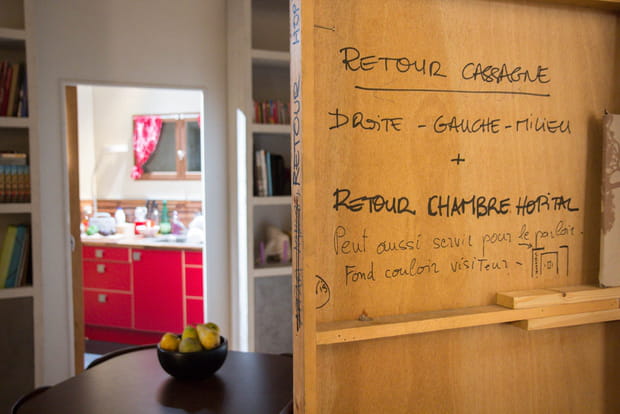 RETOUR CASSAGNE
DROITE - GAUCHE - MILIEU
+
RETOUR CHAMBRE HOPITAL
Peut aussi servir pour le parloir.
Fond couloir visiteur -
15
RETOUR HOP